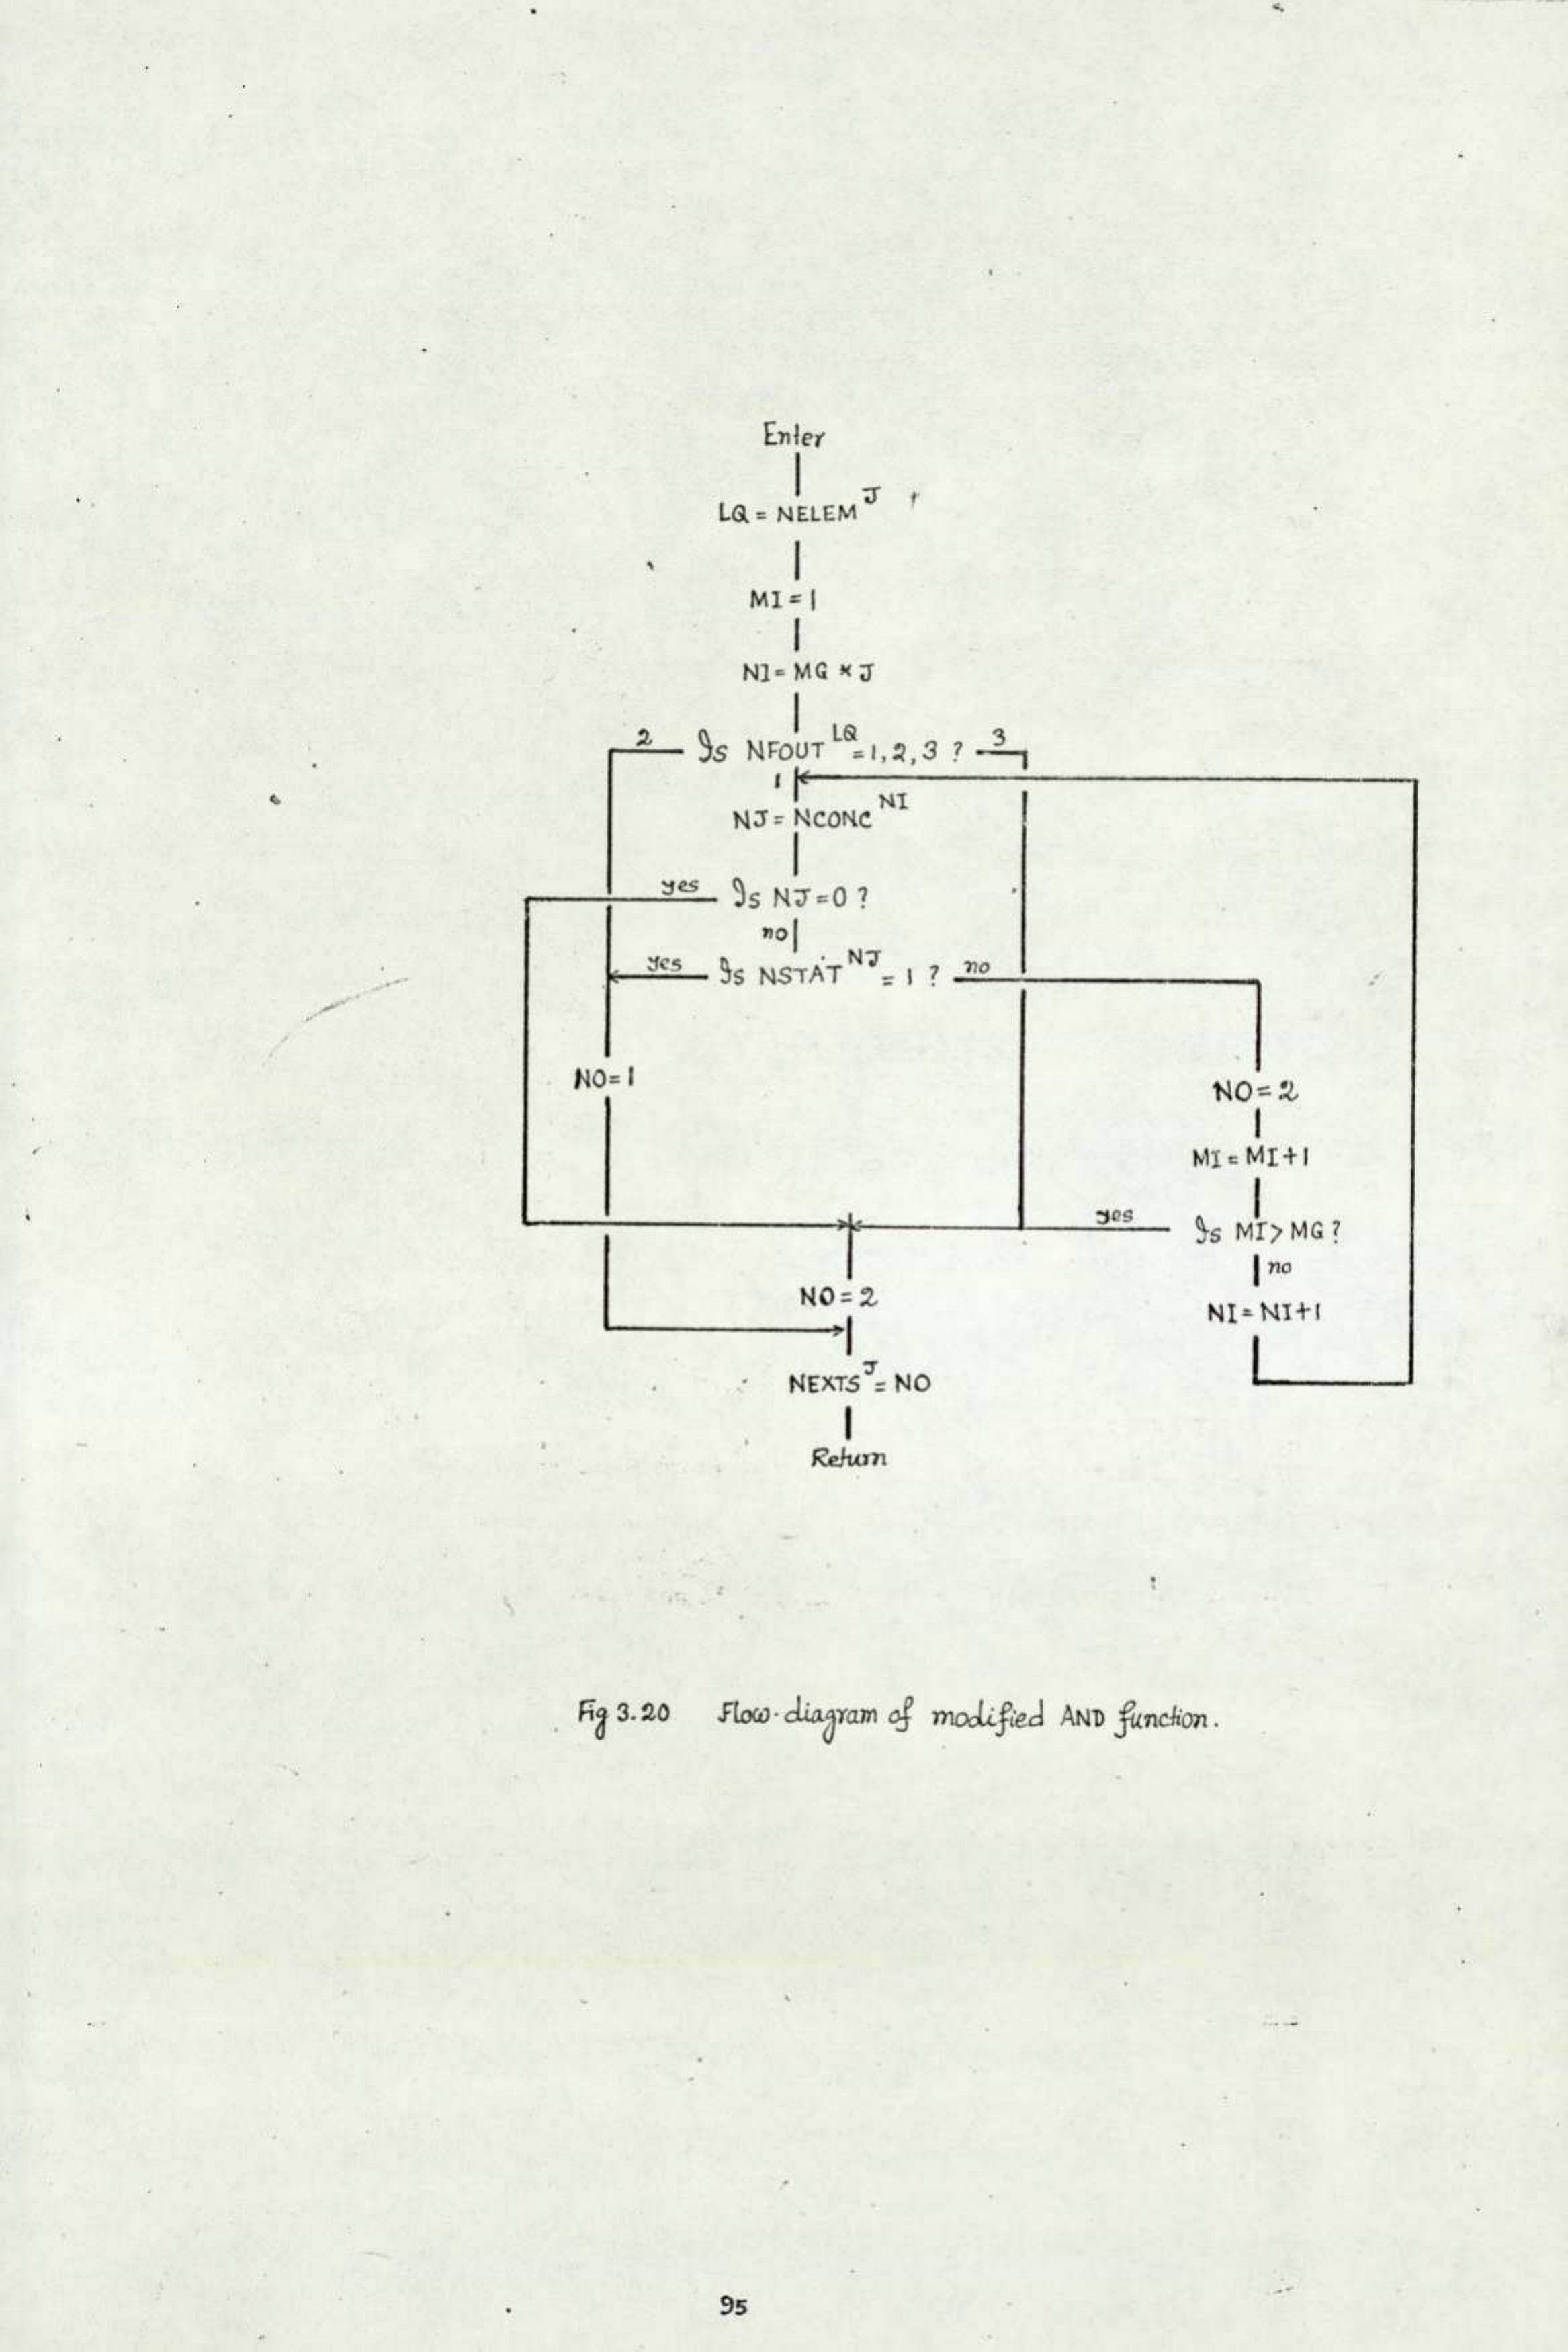 Enter
LQ = NELEM^J
MI = 1
NI = MG * J
2 Is NFOUT^LQ = 1, 2, 3 ? 3
1
NJ = NCONC^NI
yes Is NJ = 0 ?
no
yes Is NSTAT^NJ = 1 ? no
NO = 1
NO = 2
MI = MI + 1
yes Is MI > MG ?
no
NO = 2
NI = NI + 1
NEXTS^J = NO
Return
Fig 3.20 Flow diagram of modified AND function.
95